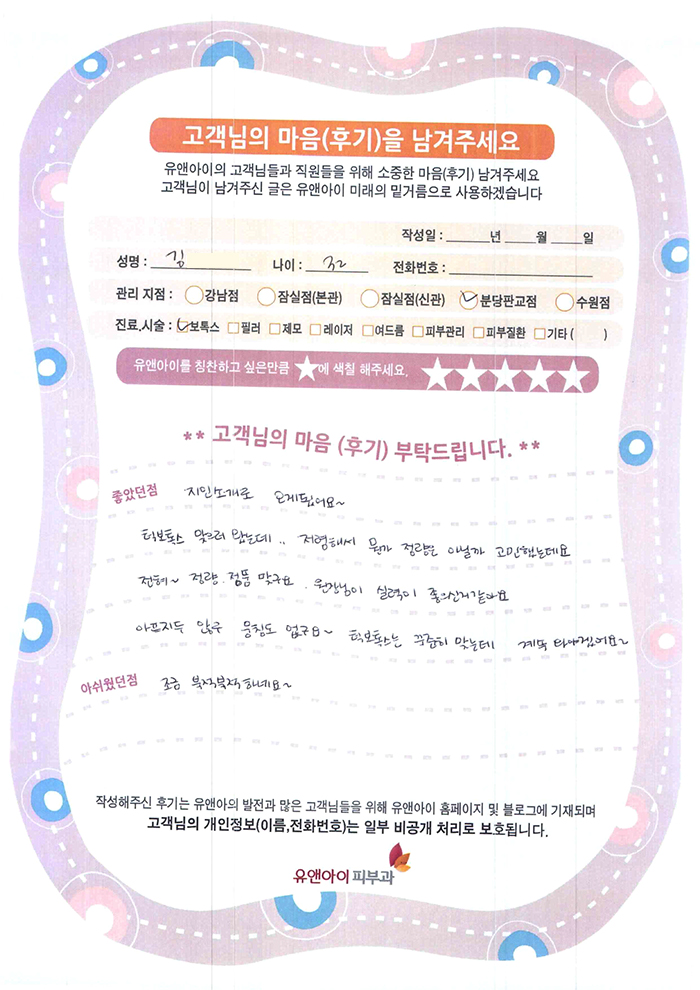 고객님의 마음(후기)을 남겨주세요
유앤아이의 고객님들과 직원들을 위해 소중한 마음(후기) 남겨주세요
고객님이 남겨주신 글은 유앤아이 미래의 밑거름으로 사용하겠습니다
작성일 : ______년 ____월 ____일
성명 : 김 나이 : 32 전화번호 :
관리 지점 : 강남점 잠실점(본관) 잠실점(신관) 분당판교점 수원점
진료,시술 : 보톡스 필러 제모 레이저 여드름 피부관리 피부질환 기타 ( )
유앤아이를 칭찬하고 싶은만큼 ★에 색칠 해주세요. ★★★★★
** 고객님의 마음 (후기) 부탁드립니다. **
좋았던점 지인소개로 오게됬어요~
턱보톡스 맞으러 왔는데.. 저렴해서 뭔가 정량은 아닐까 고민했는데요
전혀~ 정량. 정품 맞구요. 원장님이 실력이 좋으신거같아요
아프지두 않구 멍도 없구요~ 턱보톡스는 꾸준히 맞는데 계속 다녀야겠어요~
아쉬웠던점 조금 북적북적하네요~
작성해주신 후기는 유앤아의 발전과 많은 고객님들을 위해 유앤아이 홈페이지 및 블로그에 기재되며
고객님의 개인정보(이름,전화번호)는 일부 비공개 처리로 보호됩니다.
유앤아이 피부과